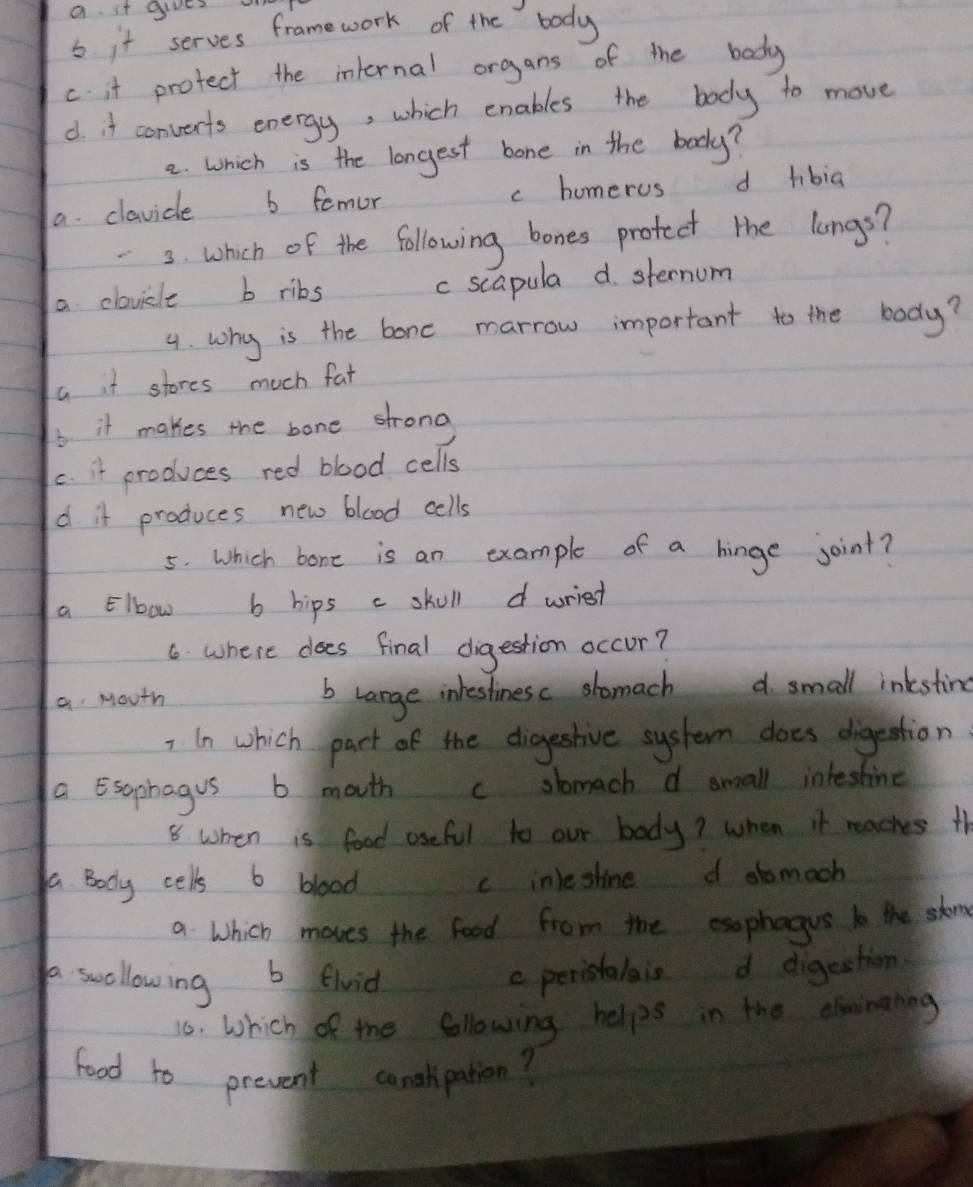 a. it gives
b. it serves framework of the body
c. it protect the internal organs of the body
d. it converts energy, which enables the body to move
2. Which is the longest bone in the body?
a. clavicle b femur c humerus d tibia
3. Which of the following bones protect the lungs?
a. clavicle b ribs c scapula d. sternum
4. Why is the bone marrow important to the body?
a it stores much fat
b it makes the bone strong
c. it produces red blood cells
d. it produces new blood cells
5. Which bone is an example of a hinge joint?
a Elbow b hips c skull d wriest
6. Where does final digestion occur?
a. Mouth b Large intestines c stomach d. small intestine
7. In which part of the digestive system does digestion
a Esophagus b mouth c stomach d small intestine
8. When is food useful to our body? When it reaches th
a Body cells b blood c intestine d stomach
9. Which moves the food from the esophagus to the stoma
a. swallowing b fluid c peristalsis d digestion
10. Which of the following helps in the eliminating
food to prevent constipation?